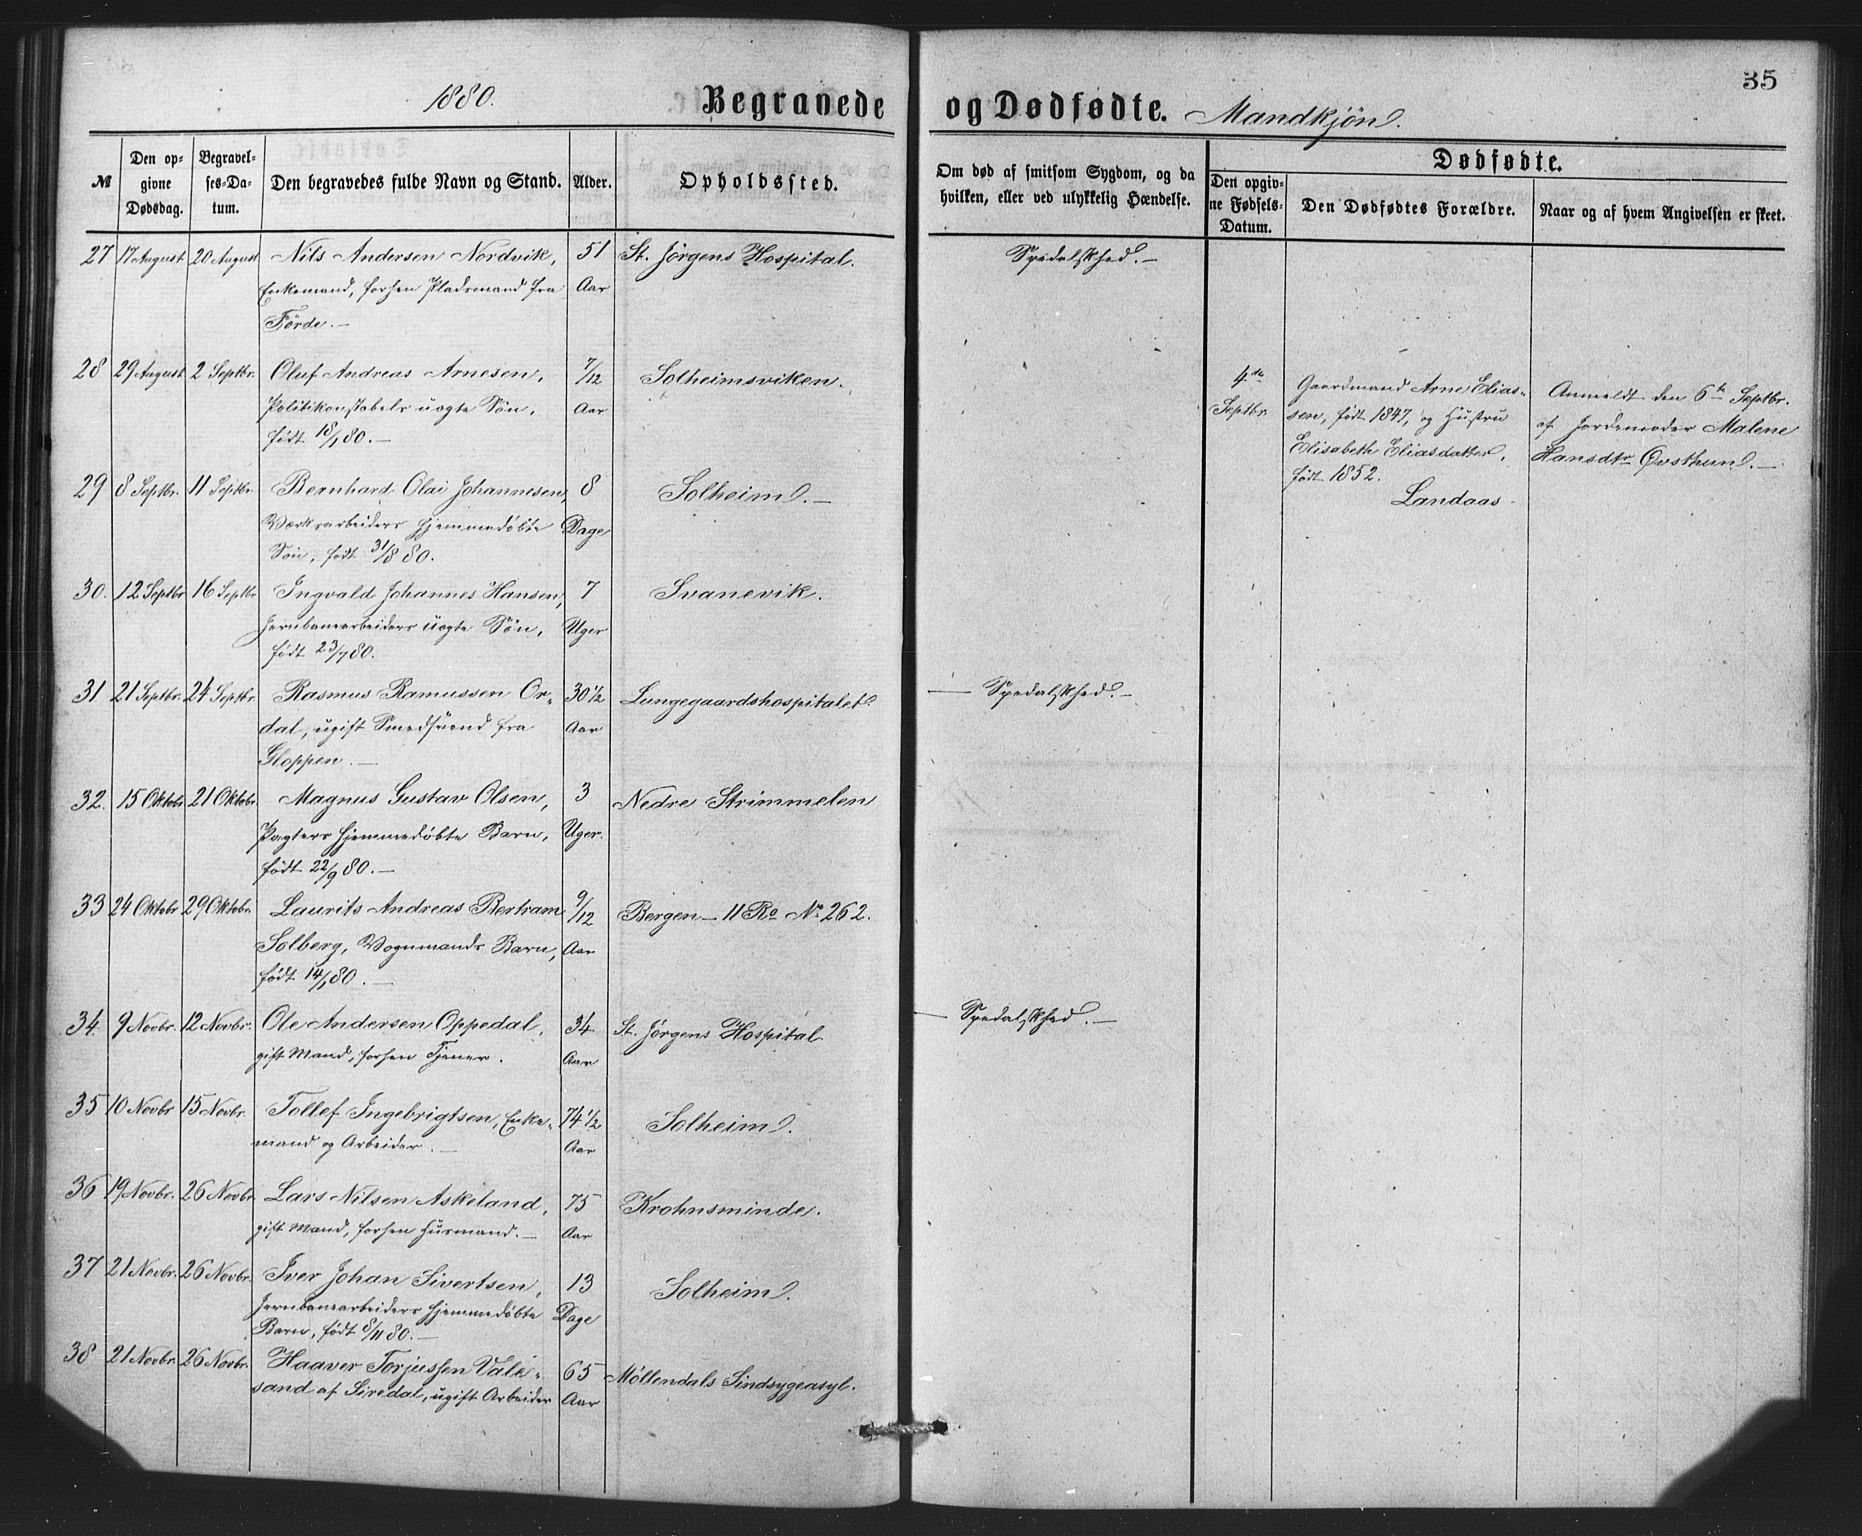 35
1880.
Begravede og Dødfødte. Mandkjøn.
№
Den op-
givne
Dødsdag.
Begravel-
ses-Da-
tum.
Den begravedes fulde Navn og Stand.
Alder.
Opholdssted.
Om død af smitsom Sygdom, og da
hvilken, eller ved ulykkelig Hændelse.
Dødfødte.
Den opgiv-
ne Fødsels-
Datum.
Den Dødfødtes Forældre.
Naar og af hvem Angivelsen er skeet.
27 17 August 20 August Nils Andersen Nordvik, 51 St. Jörgens Hospital. Spedalskhed. –
Enkemand, forhen Pladsmand fra Aar
Förde. –
28 29 August 2 Septbr. Oluf Andreas Arnesen, 7/12 Solheimsviken.
Politikonstabels uægte Søn, Aar
født 18/1 80. –
4de
Septbr.
Gaardmand Arne Elias-
sen, født 1847, og Hustru
Elisabeth Eliasdatter,
født 1852.
Landaas
Anmeldt den 6te Septbr.
af Jordemoder Malene
Hansdtr Øvsthun. –
29 8 Septbr. 11 Septbr. Bernhard Olai Johannesen, 8 Solheim. –
Værksarbeiders hjemmedøbte Dage
Søn, født 31/8 80.
30. 12 Septbr 16 Septbr Ingvald Johannes Hansen, 7 Svanevik.
Jernbanearbeiders uægte Søn, Uger
født 23/7 80.
31. 21 Septbr. 24 Septbr. Rasmus Ramussen Or- 30 1/2 Lungegaardshospitalet. – Spedalskhed. –
dal, ugift Smedsvend fra Aar
Gloppen. –
32. 15 Oktobr 21 Oktobr Magnus Gustav Olsen, 3 Nedre Strimmelen
Pagters hjemmedøbte Barn, Uger.
født 22/9 80. –
33 24 Oktobr 29 Oktobr. Laurits Andreas Bertram 9/12 Bergen – 11 Ro No 262.
Solberg, Vognmands Barn, Aar
født 14/1 80. –
34. 9 Novbr. 12 Novbr. Ole Andersen Oppedal, 34 St. Jørgens Hospital. – Spedalskhed. –
gift Mand, forhen Tjener. Aar
35 10 Novbr 15 Novbr. Tollef Ingebrigtsen, Enke- 74 1/2 Solheim.
mand og Arbeider. – Aar
36 19 Novbr. 26 Novbr. Lars Nilsen Askeland, 75 Krohnsminde.
gift Mand, forhen Husmand. – Aar
37 21 Novbr. 26 Novbr. Iver Johan Sivertsen, 13 Solheim.
Jernbanearbeiders hjemmedøbte Dage
Barn, født 8/11 80. –
38 21 Novbr. 26 Novbr. Haaver Torjussen Vale- 65 Møllendals Sindsygeasyl.
sand af Siredal, ugift Arbeider Aar